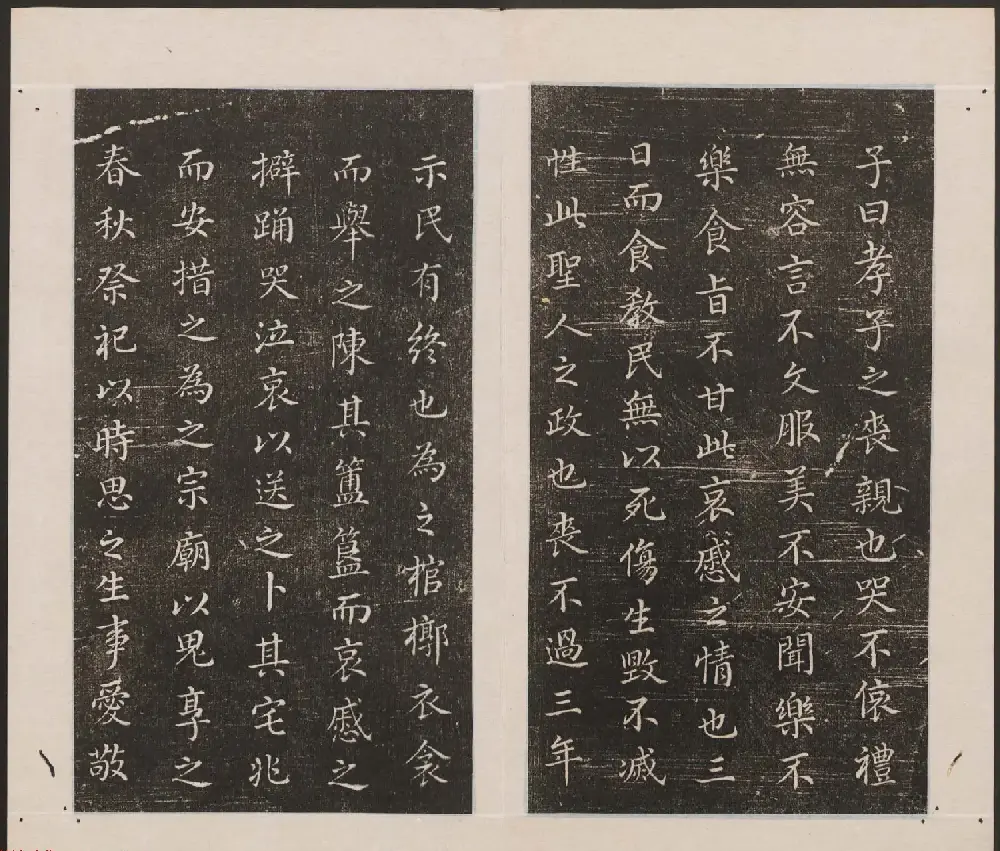 子曰孝子之喪親也哭不偯禮
無容言不文服美不安聞樂不
樂食旨不甘此哀慼之情也三
日而食教民無以死傷生毀不滅
性此聖人之政也喪不過三年
示民有終也為之棺槨衣衾
而舉之陳其簠簋而哀慼之
擗踊哭泣哀以送之卜其宅兆
而安措之為之宗廟以鬼享之
春秋祭祀以時思之生事愛敬